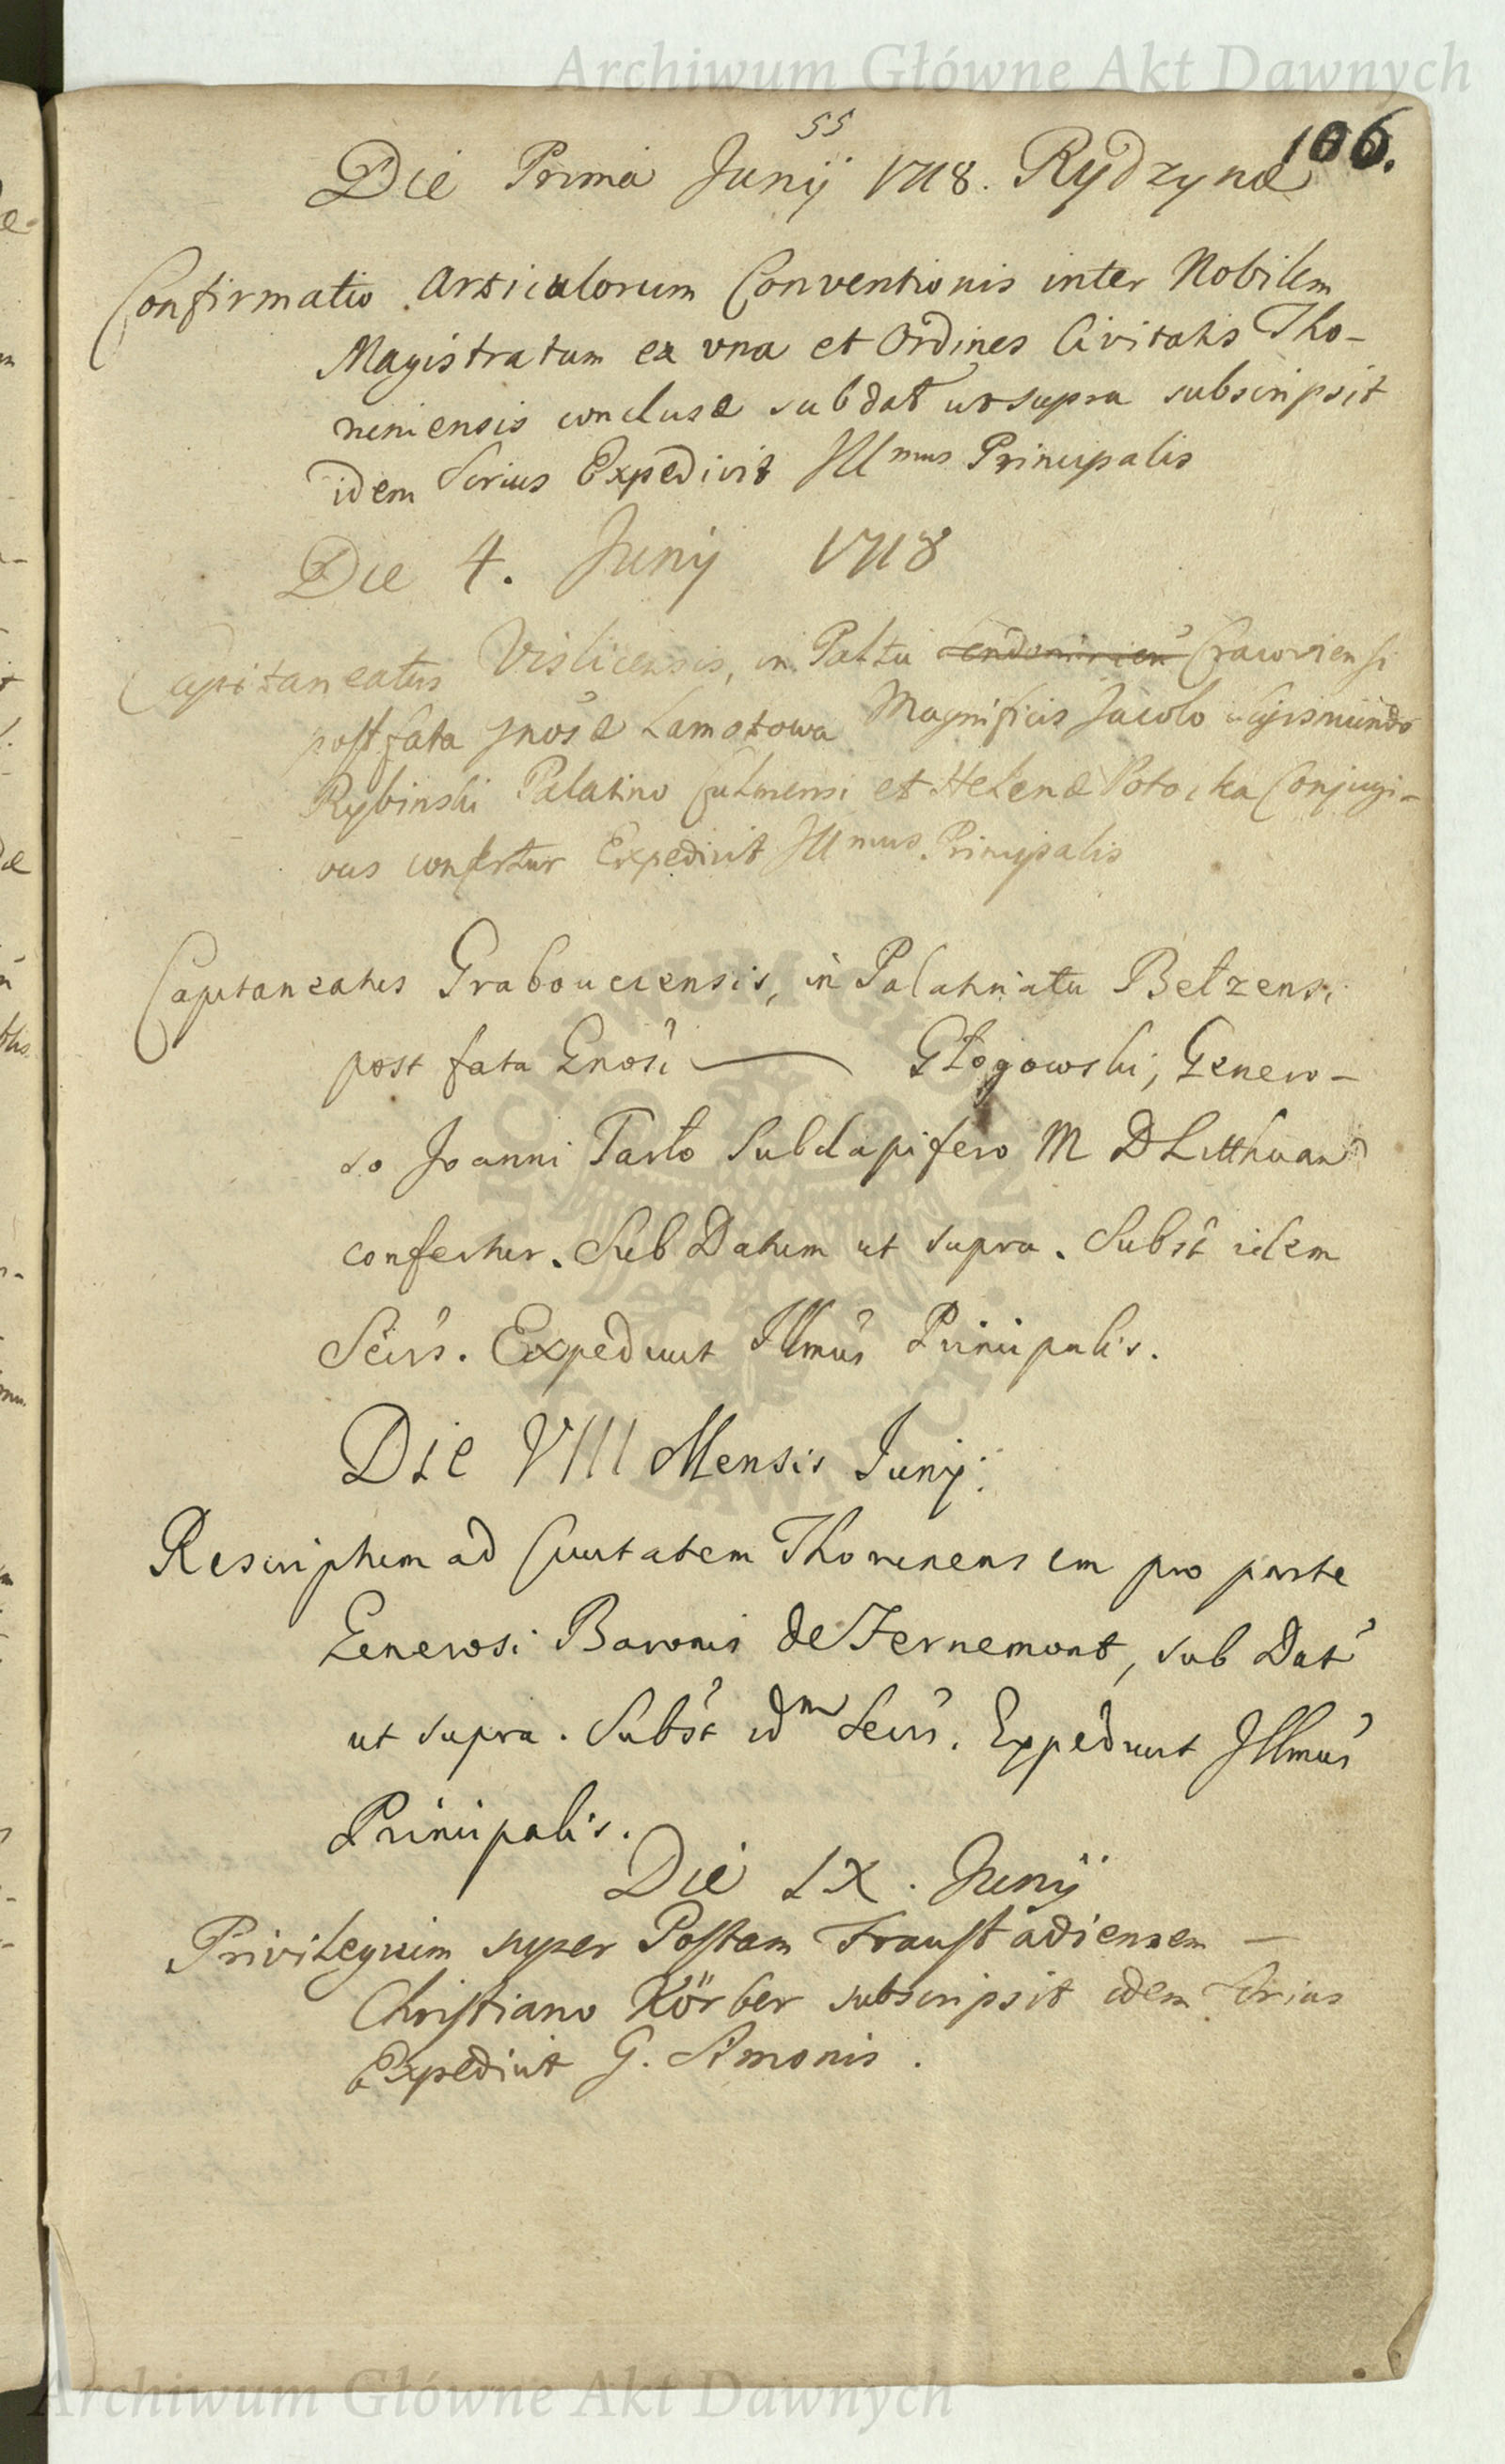 Archiwum Główne Akt Dawnych
55
106.
Die Prima Junij 1718. Rydzynæ
Confirmatio Articulorum Conventionis inter Nobilem
Magistratum ex vna et Ordines Civitatis Tho-
runiensis conclusæ sub dat ut supra subscripsit
idem Serius Expedivit Illmus Principalis
Die 4. Junij 1718
Capitaneatus Visliciensis, in Paltu Sendomirien Cracoviensi
post fata Gnosæ Lamotowa Magnificis Jacobo Sigismundo
Rybinski Palatino Culmensi et Helenæ Potocka Conjugi-
bus confertur Expedivit Illmus Principalis
Capitaneatus Graboviecensis, in Palatinatu Bełzensi
post fata Gnosi — Głogowski, Genero-
so Joanni Tarło Subdapifero M D Litthuan
confertur. Sub Datum ut supra. Subst idem
Seius. Expedivit Illmus Principalis.
Die VIII Mensis Junij.
Rescriptum ad Civitatem Thorunensem pro parte
Generosi Baronis de Fernemont, sub Dat
ut supra. Subst idm Seius. Expedivit Illmus
Principalis.
Die IX. Junij
Privilegium super Postam Fraustadiensem —
Christiano Körber subscripsit idem Srius
Expedivit G. Simonis.
Archiwum Główne Akt Dawnych